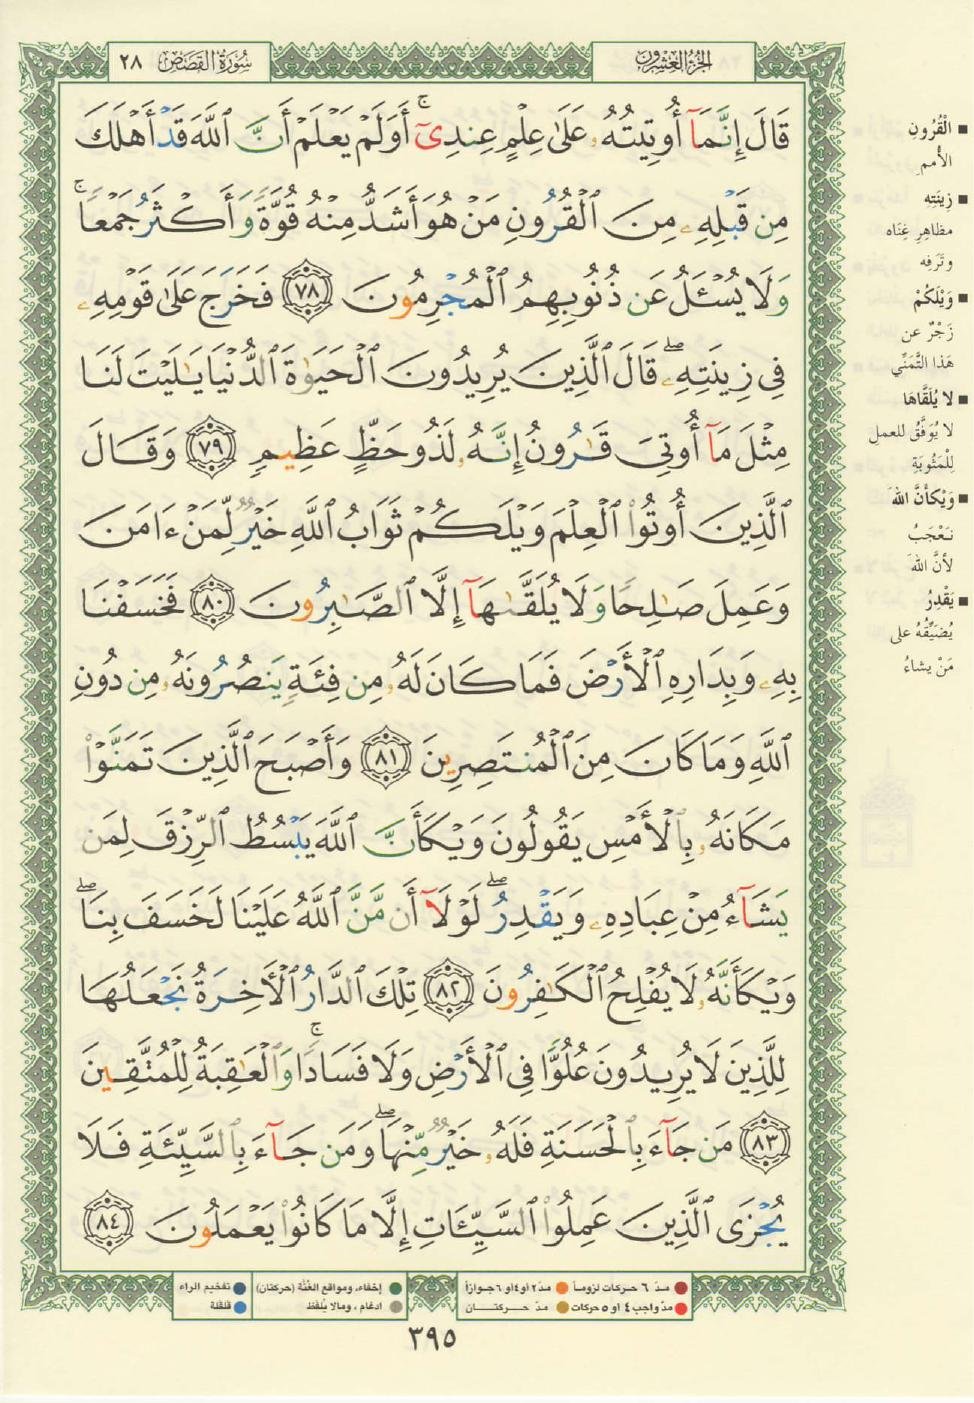 الجزء العشرون
سورة القصص ٢٨
قَالَ إِنَّمَآ أُوتِيتُهُۥ عَلَىٰ عِلْمٍ عِندِىٓ ۚ أَوَلَمْ يَعْلَمْ أَنَّ ٱللَّهَ قَدْ أَهْلَكَ
مِن قَبْلِهِۦ مِنَ ٱلْقُرُونِ مَنْ هُوَ أَشَدُّ مِنْهُ قُوَّةً وَأَكْثَرُ جَمْعًا ۚ
وَلَا يُسْـَٔلُ عَن ذُنُوبِهِمُ ٱلْمُجْرِمُونَ ﴿٧٨﴾ فَخَرَجَ عَلَىٰ قَوْمِهِۦ
فِى زِينَتِهِۦ ۖ قَالَ ٱلَّذِينَ يُرِيدُونَ ٱلْحَيَوٰةَ ٱلدُّنْيَا يَـٰلَيْتَ لَنَا
مِثْلَ مَآ أُوتِىَ قَـٰرُونُ إِنَّهُۥ لَذُو حَظٍّ عَظِيمٍ ﴿٧٩﴾ وَقَالَ
ٱلَّذِينَ أُوتُوا۟ ٱلْعِلْمَ وَيْلَكُمْ ثَوَابُ ٱللَّهِ خَيْرٌ لِّمَنْ ءَامَنَ
وَعَمِلَ صَـٰلِحًا وَلَا يُلَقَّىٰهَآ إِلَّا ٱلصَّـٰبِرُونَ ﴿٨٠﴾ فَخَسَفْنَا
بِهِۦ وَبِدَارِهِ ٱلْأَرْضَ فَمَا كَانَ لَهُۥ مِن فِئَةٍ يَنصُرُونَهُۥ مِن دُونِ
ٱللَّهِ وَمَا كَانَ مِنَ ٱلْمُنتَصِرِينَ ﴿٨١﴾ وَأَصْبَحَ ٱلَّذِينَ تَمَنَّوْا۟
مَكَانَهُۥ بِٱلْأَمْسِ يَقُولُونَ وَيْكَأَنَّ ٱللَّهَ يَبْسُطُ ٱلرِّزْقَ لِمَن
يَشَآءُ مِنْ عِبَادِهِۦ وَيَقْدِرُ ۖ لَوْلَآ أَن مَّنَّ ٱللَّهُ عَلَيْنَا لَخَسَفَ بِنَا ۖ
وَيْكَأَنَّهُۥ لَا يُفْلِحُ ٱلْكَـٰفِرُونَ ﴿٨٢﴾ تِلْكَ ٱلدَّارُ ٱلْـَٔاخِرَةُ نَجْعَلُهَا
لِلَّذِينَ لَا يُرِيدُونَ عُلُوًّا فِى ٱلْأَرْضِ وَلَا فَسَادًا ۚ وَٱلْعَـٰقِبَةُ لِلْمُتَّقِينَ
﴿٨٣﴾ مَن جَآءَ بِٱلْحَسَنَةِ فَلَهُۥ خَيْرٌ مِّنْهَا ۖ وَمَن جَآءَ بِٱلسَّيِّئَةِ فَلَا
يُجْزَى ٱلَّذِينَ عَمِلُوا۟ ٱلسَّيِّـَٔاتِ إِلَّا مَا كَانُوا۟ يَعْمَلُونَ ﴿٨٤﴾
■ الْقُرُونِ
الأمم
■ زِينَتِهِ
مظاهِرِ غِنَاه
وتَرَفِه
■ وَيْلَكُمْ
زَجْرٌ عن
هَذا التَّمَنِّي
■ لا يُلَقَّاهَا
لا يُوَفَّقُ للعمل
لِلْمَثُوبَةِ
■ وَيْكَأَنَّ اللهَ
نَعْجَبُ
لأنَّ اللهَ
■ يَقْدِرُ
يُضَيِّقُهُ على
مَنْ يشاءُ
● مدّ ٦ حركات لزوماً ● مدّ ٢ أو ٤ أو ٦ جوازاً
● مدّ واجب ٤ أو ٥ حركات ● مدّ حركتان
● إخفاء، ومواقع الغُنَّة (حركتان) ● تفخيم الراء
● ادغام، ومالا يُلفَظ ● قلقلة
٣٩٥